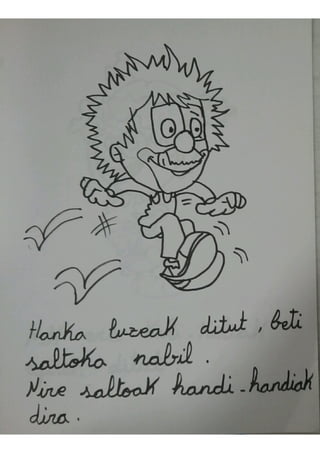 Hanka luzeak ditut , beti
saltoka nabil .
Nire saltoak handi-handiak
dira .